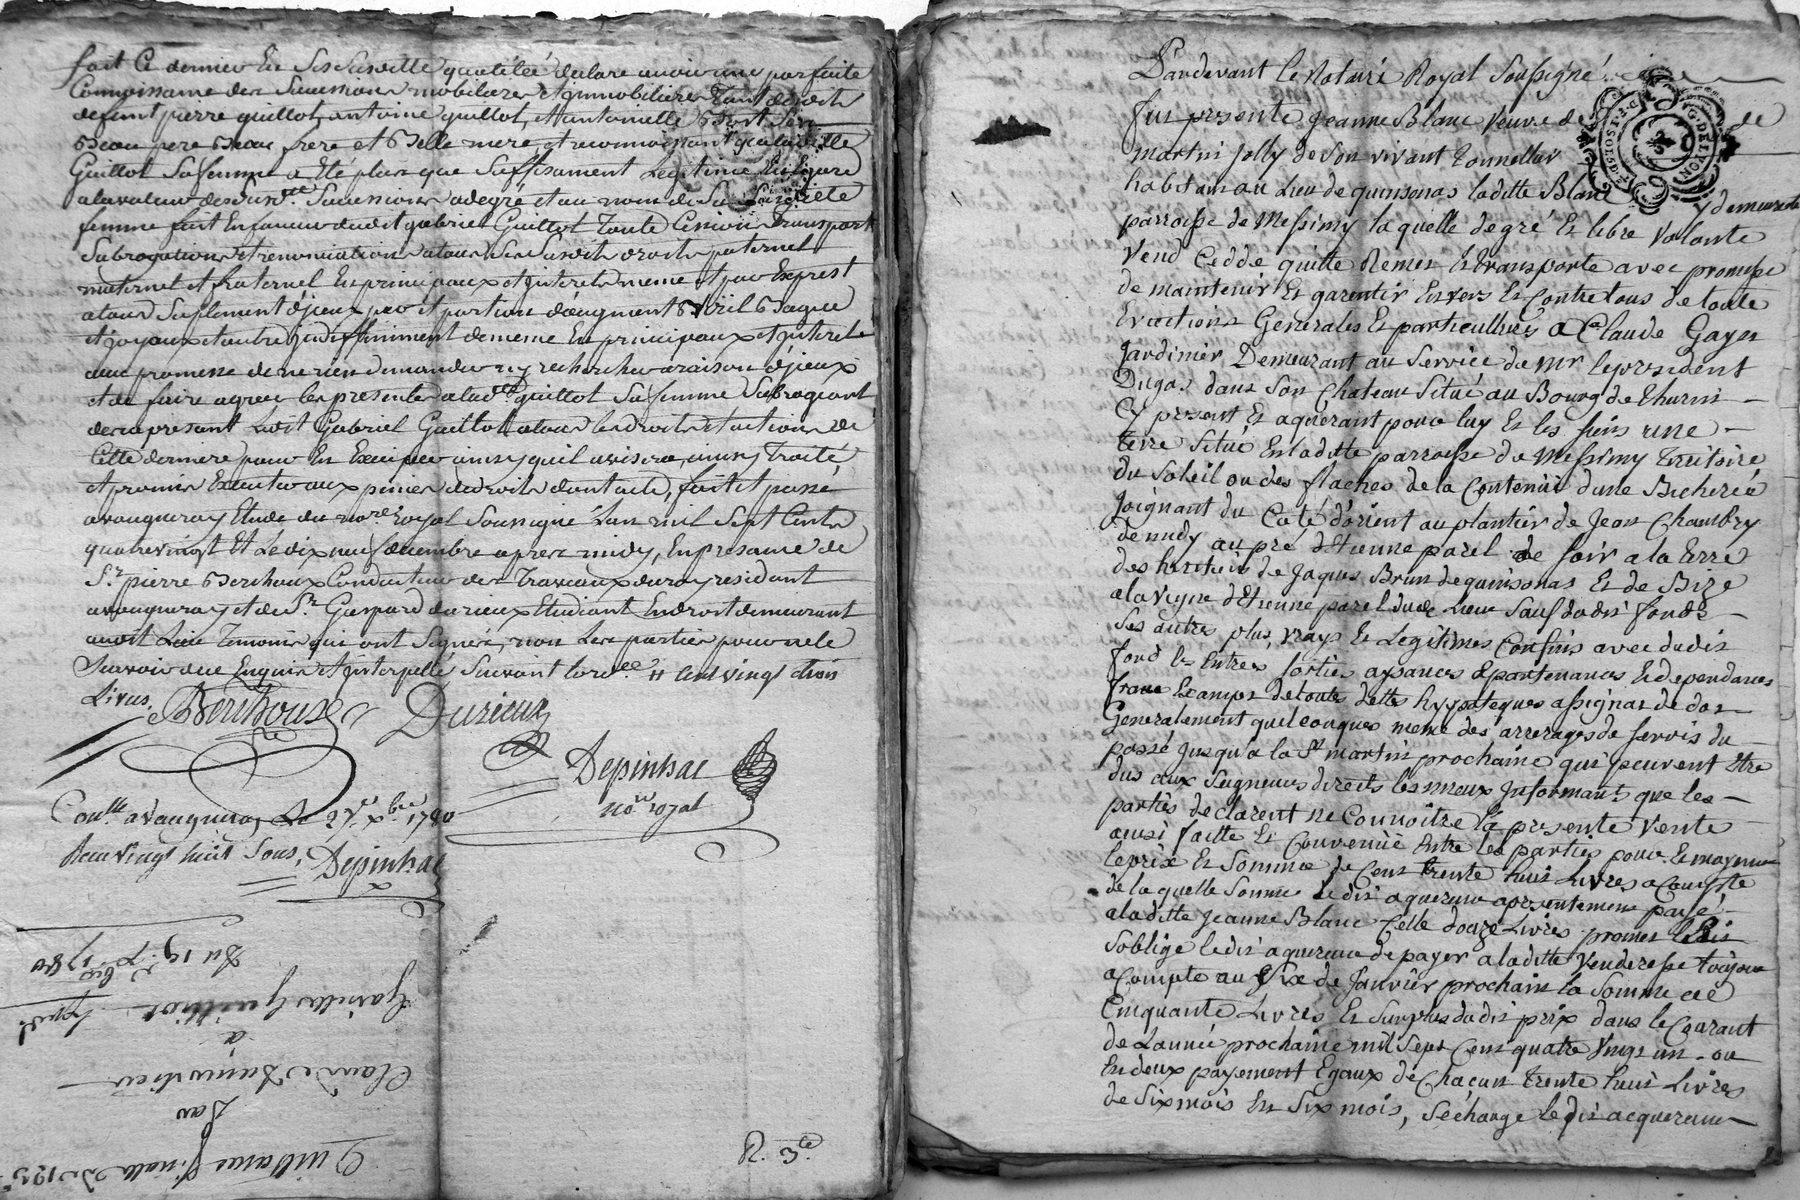 fait Ce dernier En Sesdusditte qualitée declare avoir une parfaite
Connoissance des Successions mobiliaires et immobiliaires Tant dudit
defunt pierre guillot, antoine guillot, et antoinette
Beau pere Beau frere et Belle mere, et reconnoissant que laditte
Guillot Sa femme a Eté plus que Suffisament Legitimée
a la valeur desdun. Successions a degré et au nom de Sa Susditte
femme fait En faveur dudit gabriel Guillot Toute Cession Transport
Subrogation et renonciation a tous Ses Susdits droits paternel
maternel et fraternel En principaux et interets meme et par Exprest
a tous Suplement
et joyaux et autre indiffiniment de meme En principaux et interets
avec promesse de ne rien demander ny rechercher a raison d'jceux
et de faire agreer les presentes a lad. guillot Sa femme Subrogeant
des a present Ledit Gabriel Guillot a tous les droits et actions de
Cette derniere pour En Exciper ainsy quil avisera, ainsy Traité
et promis Executer aux peines de droits dont acte, fait et passé
a vaugneray Etude du no.re royal Soussigné Lan mil Sept Cents
quatre vingt Et Le dix neuf decembre apres midy, En presance de
S.r pierre Berthoux Conducteur des Travaux du roy residant
a vaugneray et de S.r Gaspard durieux Etudiant En droit demeurant
audit Lieu Temoins qui ont Signés, non Les parties pour ne le
Scavoir de ce Enquis et interpellé Suivant lord.ce # Cent vingt trois
Livres.
Berthoux Durieux
Depinhac
no.re royal
Con.lle a vaugneray Le Xbre 1780
Recu vingt huit Sous, Depinhac
Quittance finalle de 123
Par
Claude
a
Gabriel Guillot
Du 19. Xbre 1780
R. 3.te
Pardevant le Notaire Royal Soussigné
Fut presente Jeanne Blanc veuve de
martin Jolly de Son vivant Tonnellier
habitant au Lieu de quinsonas laditte Blanc y demeurante
parroisse de Messimy la quelle de gré Et libre Volonté
Vend Cedde quitte Remet Et transporte avec promesse
de maintenir Et garentir Envers Et Contre tous de toute
Evictions Generales Et particullieres a Claude Gayet
Jardinier Demeurant au Service de Mr le president
Dugas dans Son Chateau Situé au Bourg de Thurin
Cy present Et aquerant pour luy Et les Siens une
terre Situé En laditte parroisse de Messimy Territoire
du Soleil ou des flaches de la Contenue d'une Bicherée
Joignant du Coté d'orient au plantier de Jean Chambry
de midy au pré d'Etienne parel de Soir a la terre
des heritiers de Jaques Brun de quinsonas Et de Bize
a la vigne d'Etienne parel dudit Lieu Sauf dudit fonds
Ses autres plus vrays Et Legitimes Confins avec dudit
fond les Entrées Sorties aysances apartenances Et dependances
franc Et exempt de toutes dettes hypoteques assignat de dot
Generalement quelconques meme des arrerages de servis du
passé jusqu'a la St martin prochaine qui peuvent Etre
dus aux Seigneurs directs les mieux Informant que les
parties declarent ne Connoitre la presente vente
ainsi faitte Et Convenüe Entre les parties pour Et moyennant
le prix Et Somme de Cent trente huit Livres a Compte
de la quelle Somme ledit aquereur a presentement payé
a laditte Jeanne Blanc Celle douze Livres promet Et
S'oblige ledit aquereur de payer a laditte venderesse toujour
a Compte au Six de Janvier prochain la Somme de
Cinquante Livres Et Surplus dudit prix dans le Courant
de L'année prochaine mil Sept Cent quatre Vingt un ou
En deux payement Egaux de Chacun trente huit Livres
de Six mois En Six mois, Se Charge ledit acquereur